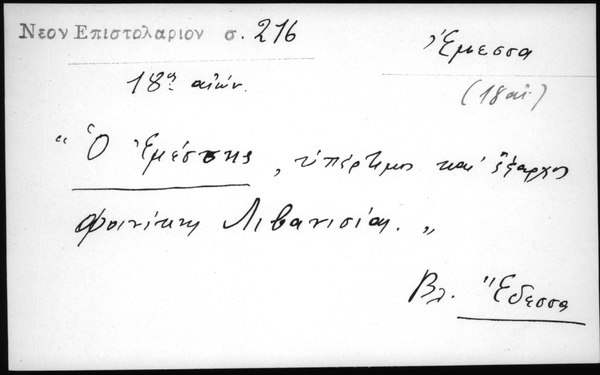 Νεον Επιστολαριον σ. 216
Ἔμεσσα
18ος αἰών.
(18 αἰ.)
"Ὁ Ἐμέσσης, ὑπέρτιμος καὶ ἔξαρχος
Φοινίκης Λιβανισίας."
Βλ. Ἔδεσσα